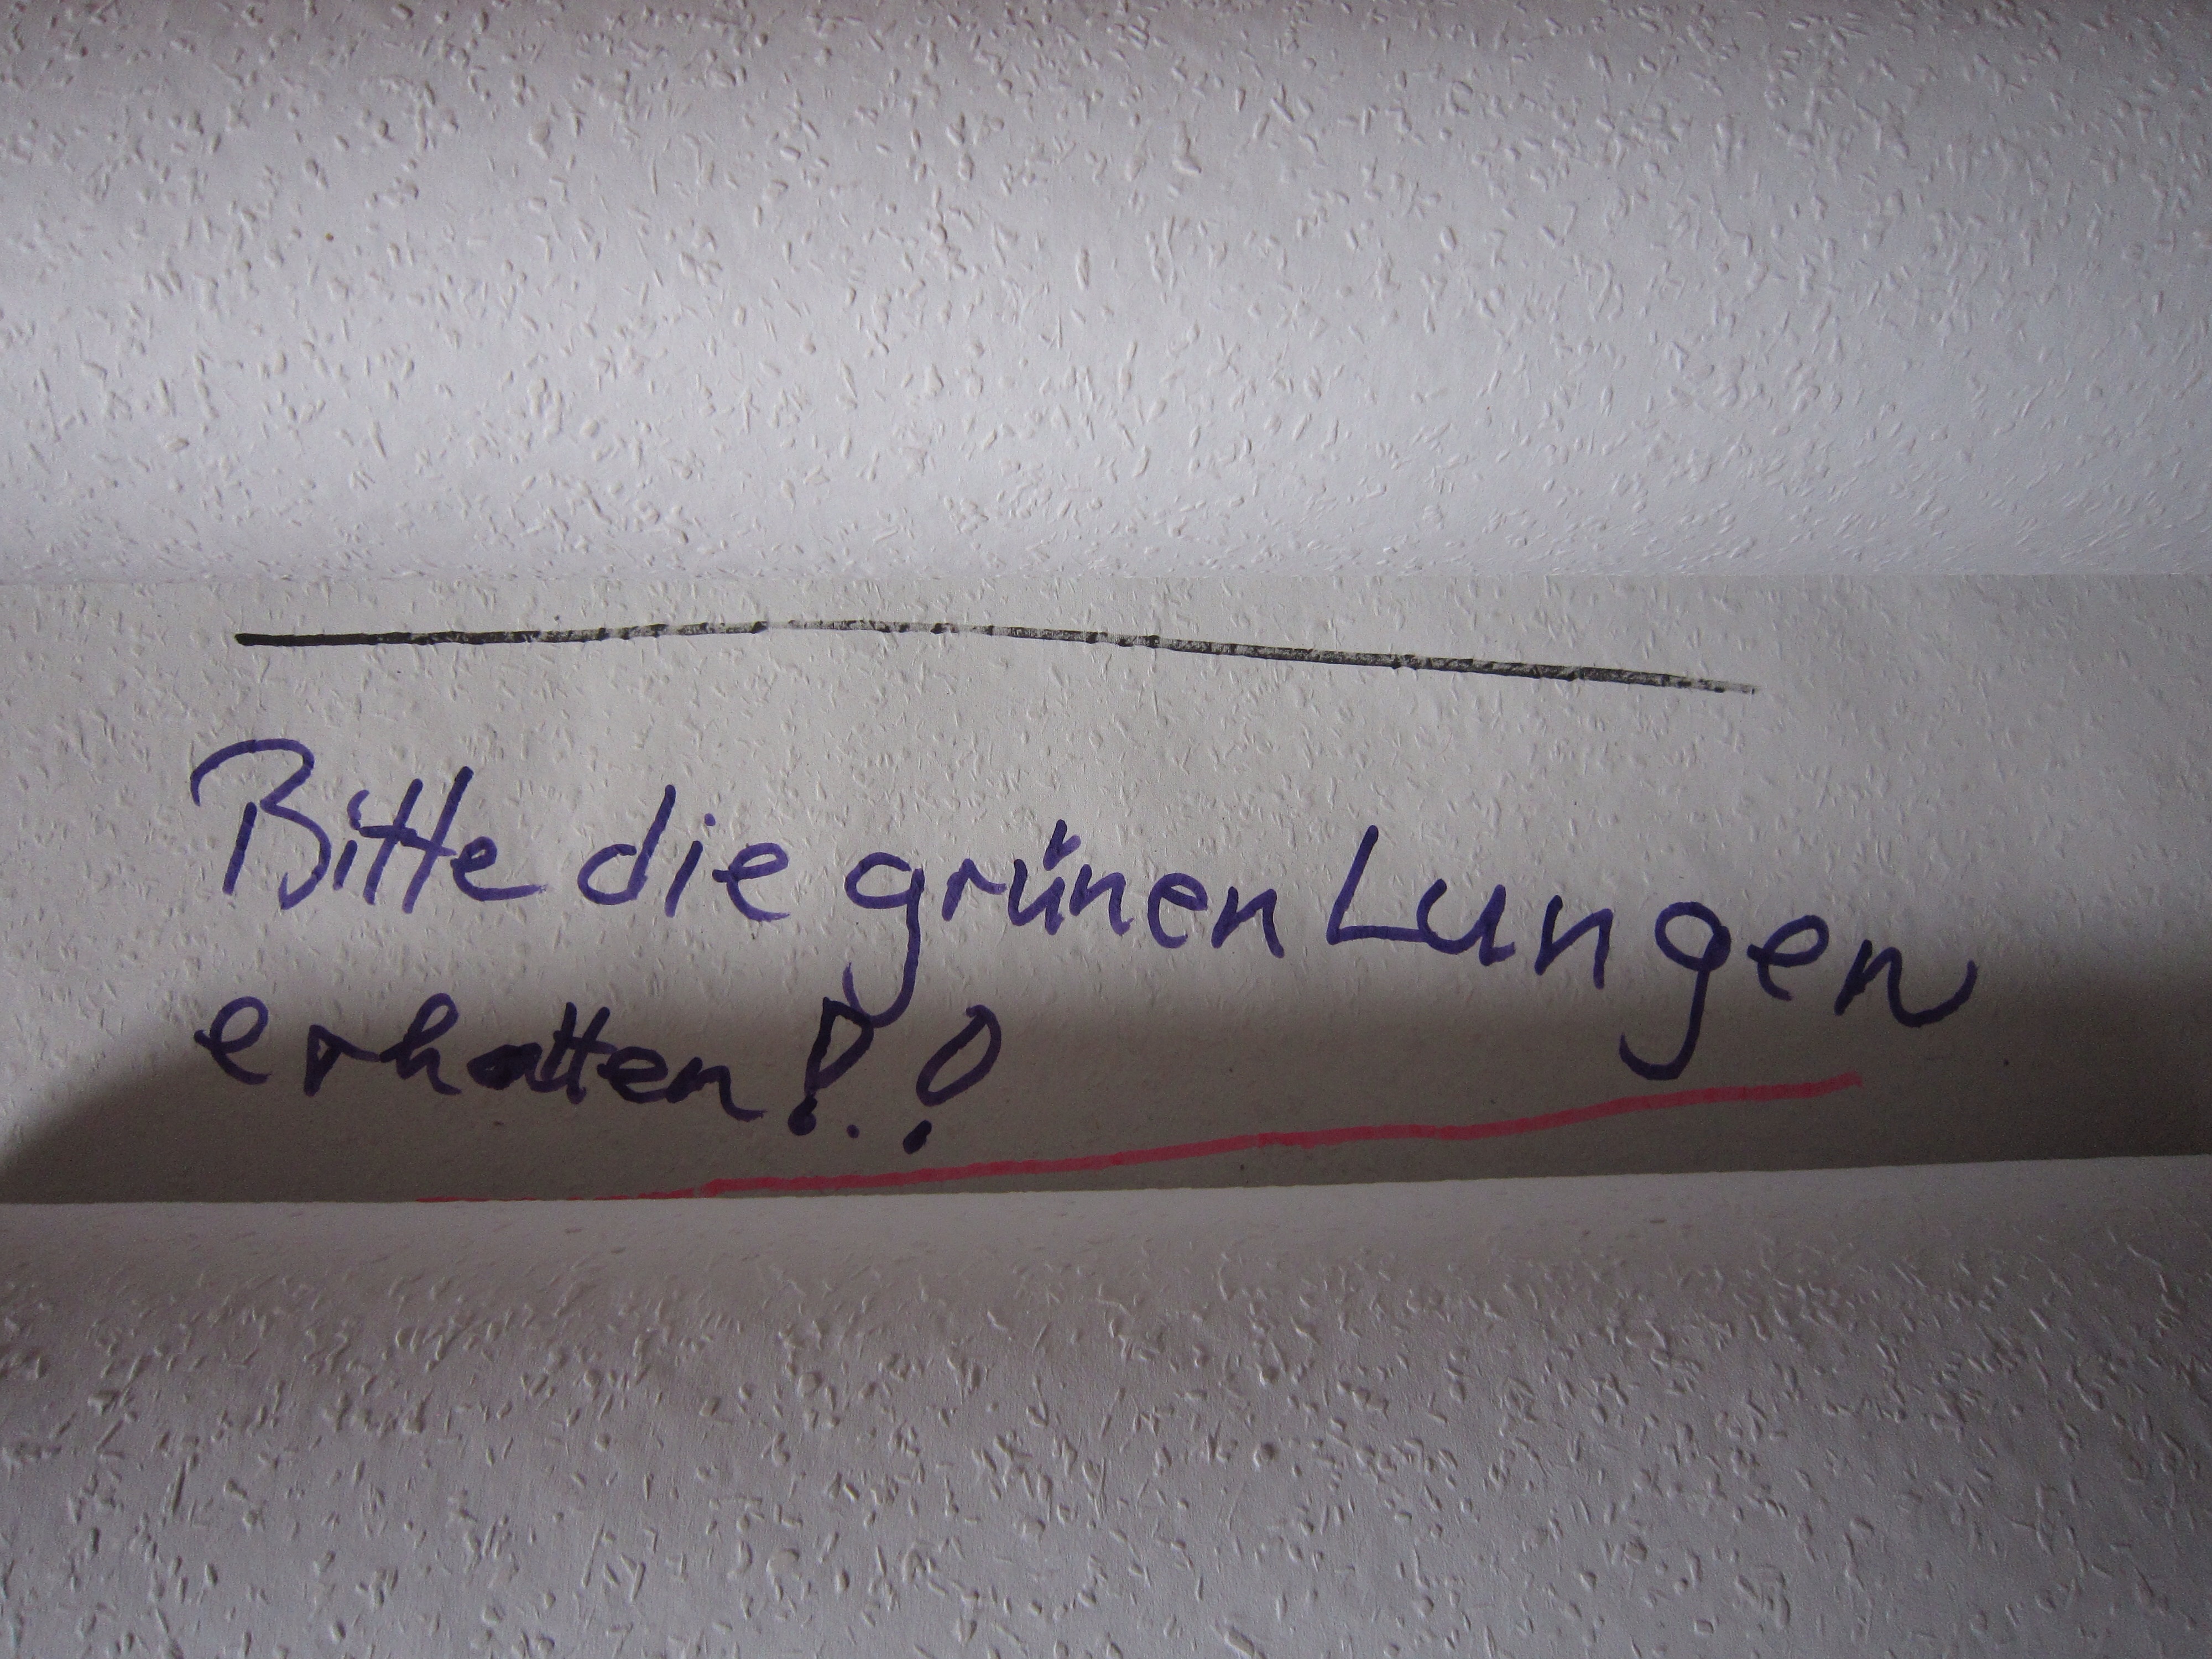 Bitte die grünen Lungen
erhalten!!